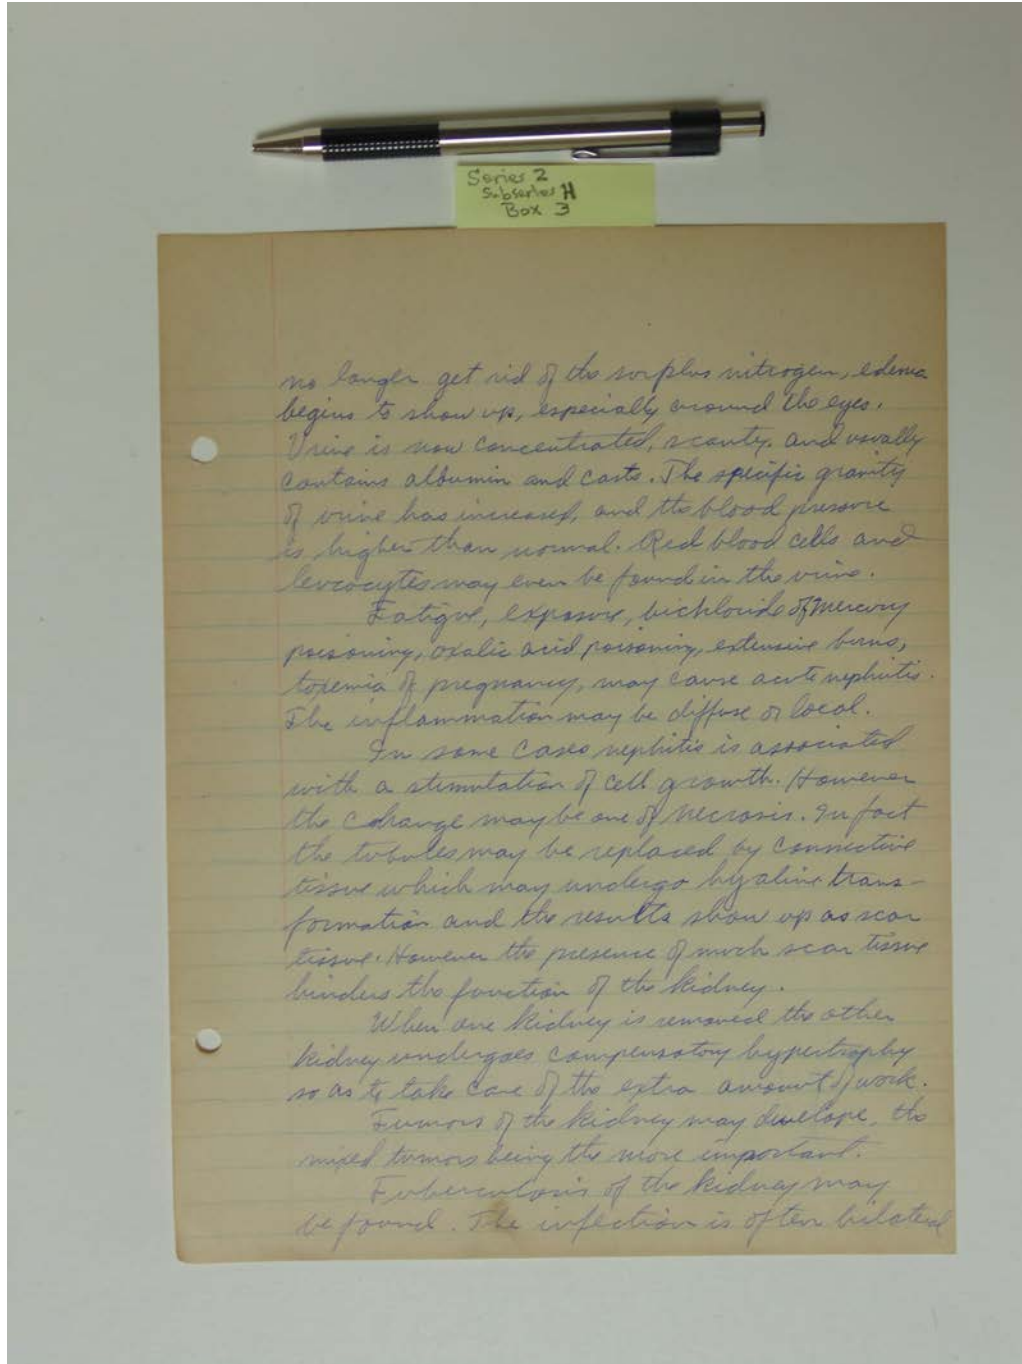 Series 2
Subseries H
Box 3
no longer get rid of the surplus nitrogen, edema
begins to show up, especially around the eyes.
Urine is now concentrated, scanty, and usually
contains albumin and casts. The specific gravity
of urine has increased, and the blood pressure
is higher than normal. Red blood cells and
leucocytes may even be found in the urine.
Fatigue, exposure, bichloride of mercury
poisoning, oxalic acid poisoning, extensive burns,
toxemia of pregnancy, may cause acute nephritis.
The inflammation may be diffuse or local.
In some cases nephitis is associated
with a stimulation of cell growth. However
the change may be one of necrosis. In fact
the tubules may be replaced by connective
tissue which may undergo hyaline trans-
formation and the results show up as scar
tissue. However the presence of much scar tissue
hinders the function of the kidney.
When one kidney is removed the other
kidney undergoes compensatory hypertrophy
so as to take care of the extra amount of work.
Tumors of the kidney may develope, the
mixed tumors being the more important.
Tuberculosis of the kidney may
be found. The infection is often bilateral